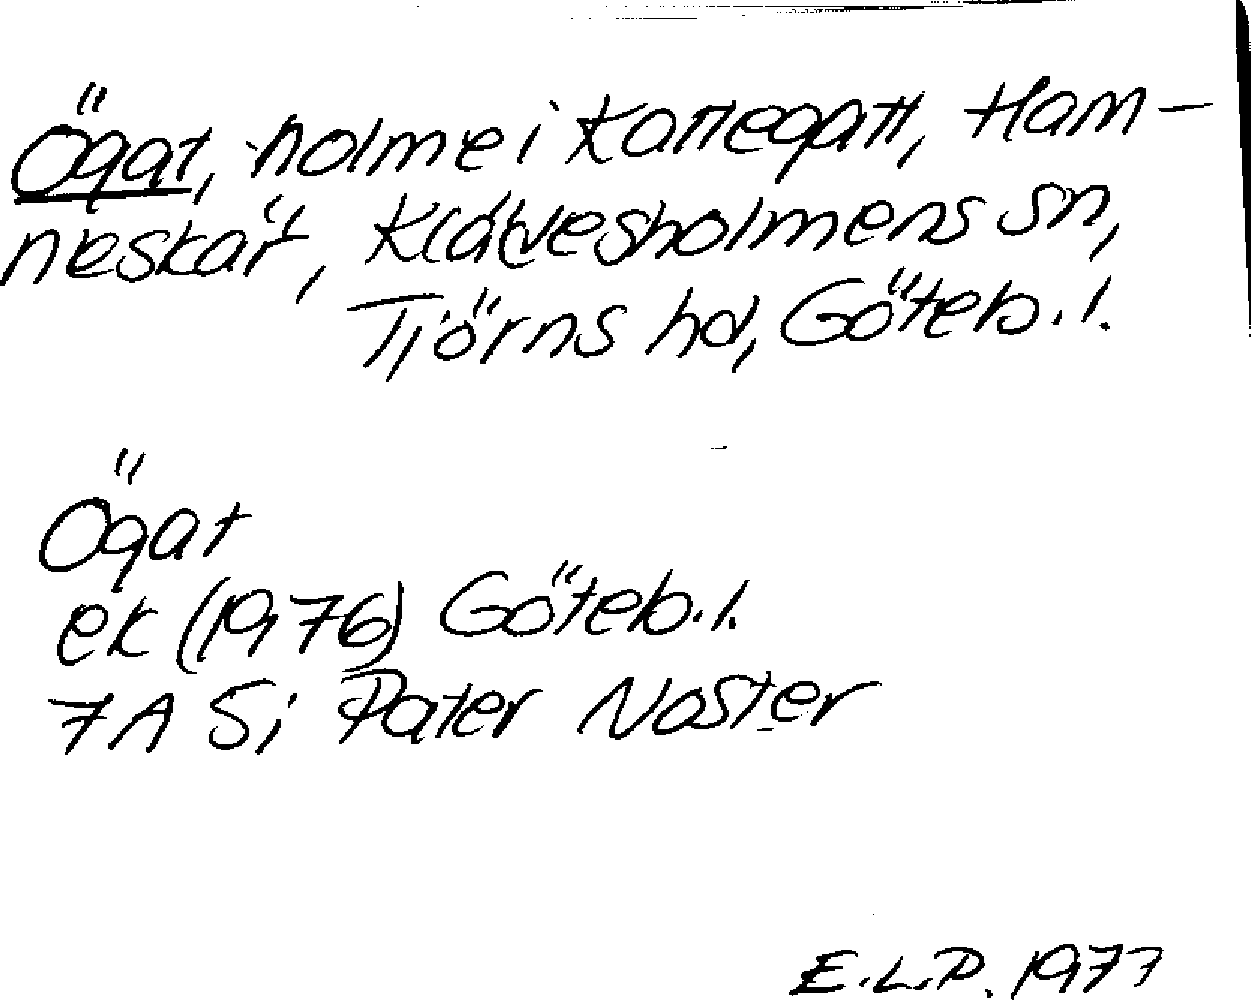 Ögat, holme i Kattegatt, Ham-
neskär, Klädesholmens sn,
Tjörns hd, Göteb. l.
Ögat
ek (1976) Göteb. l.
7A 5i Pater Noster
E.L.P. 1977